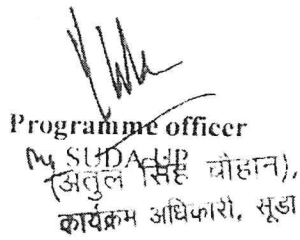 Programme officer
SUDA, UP
(अतुल सिंह चौहान),
कार्यक्रम अधिकारी, सूडा